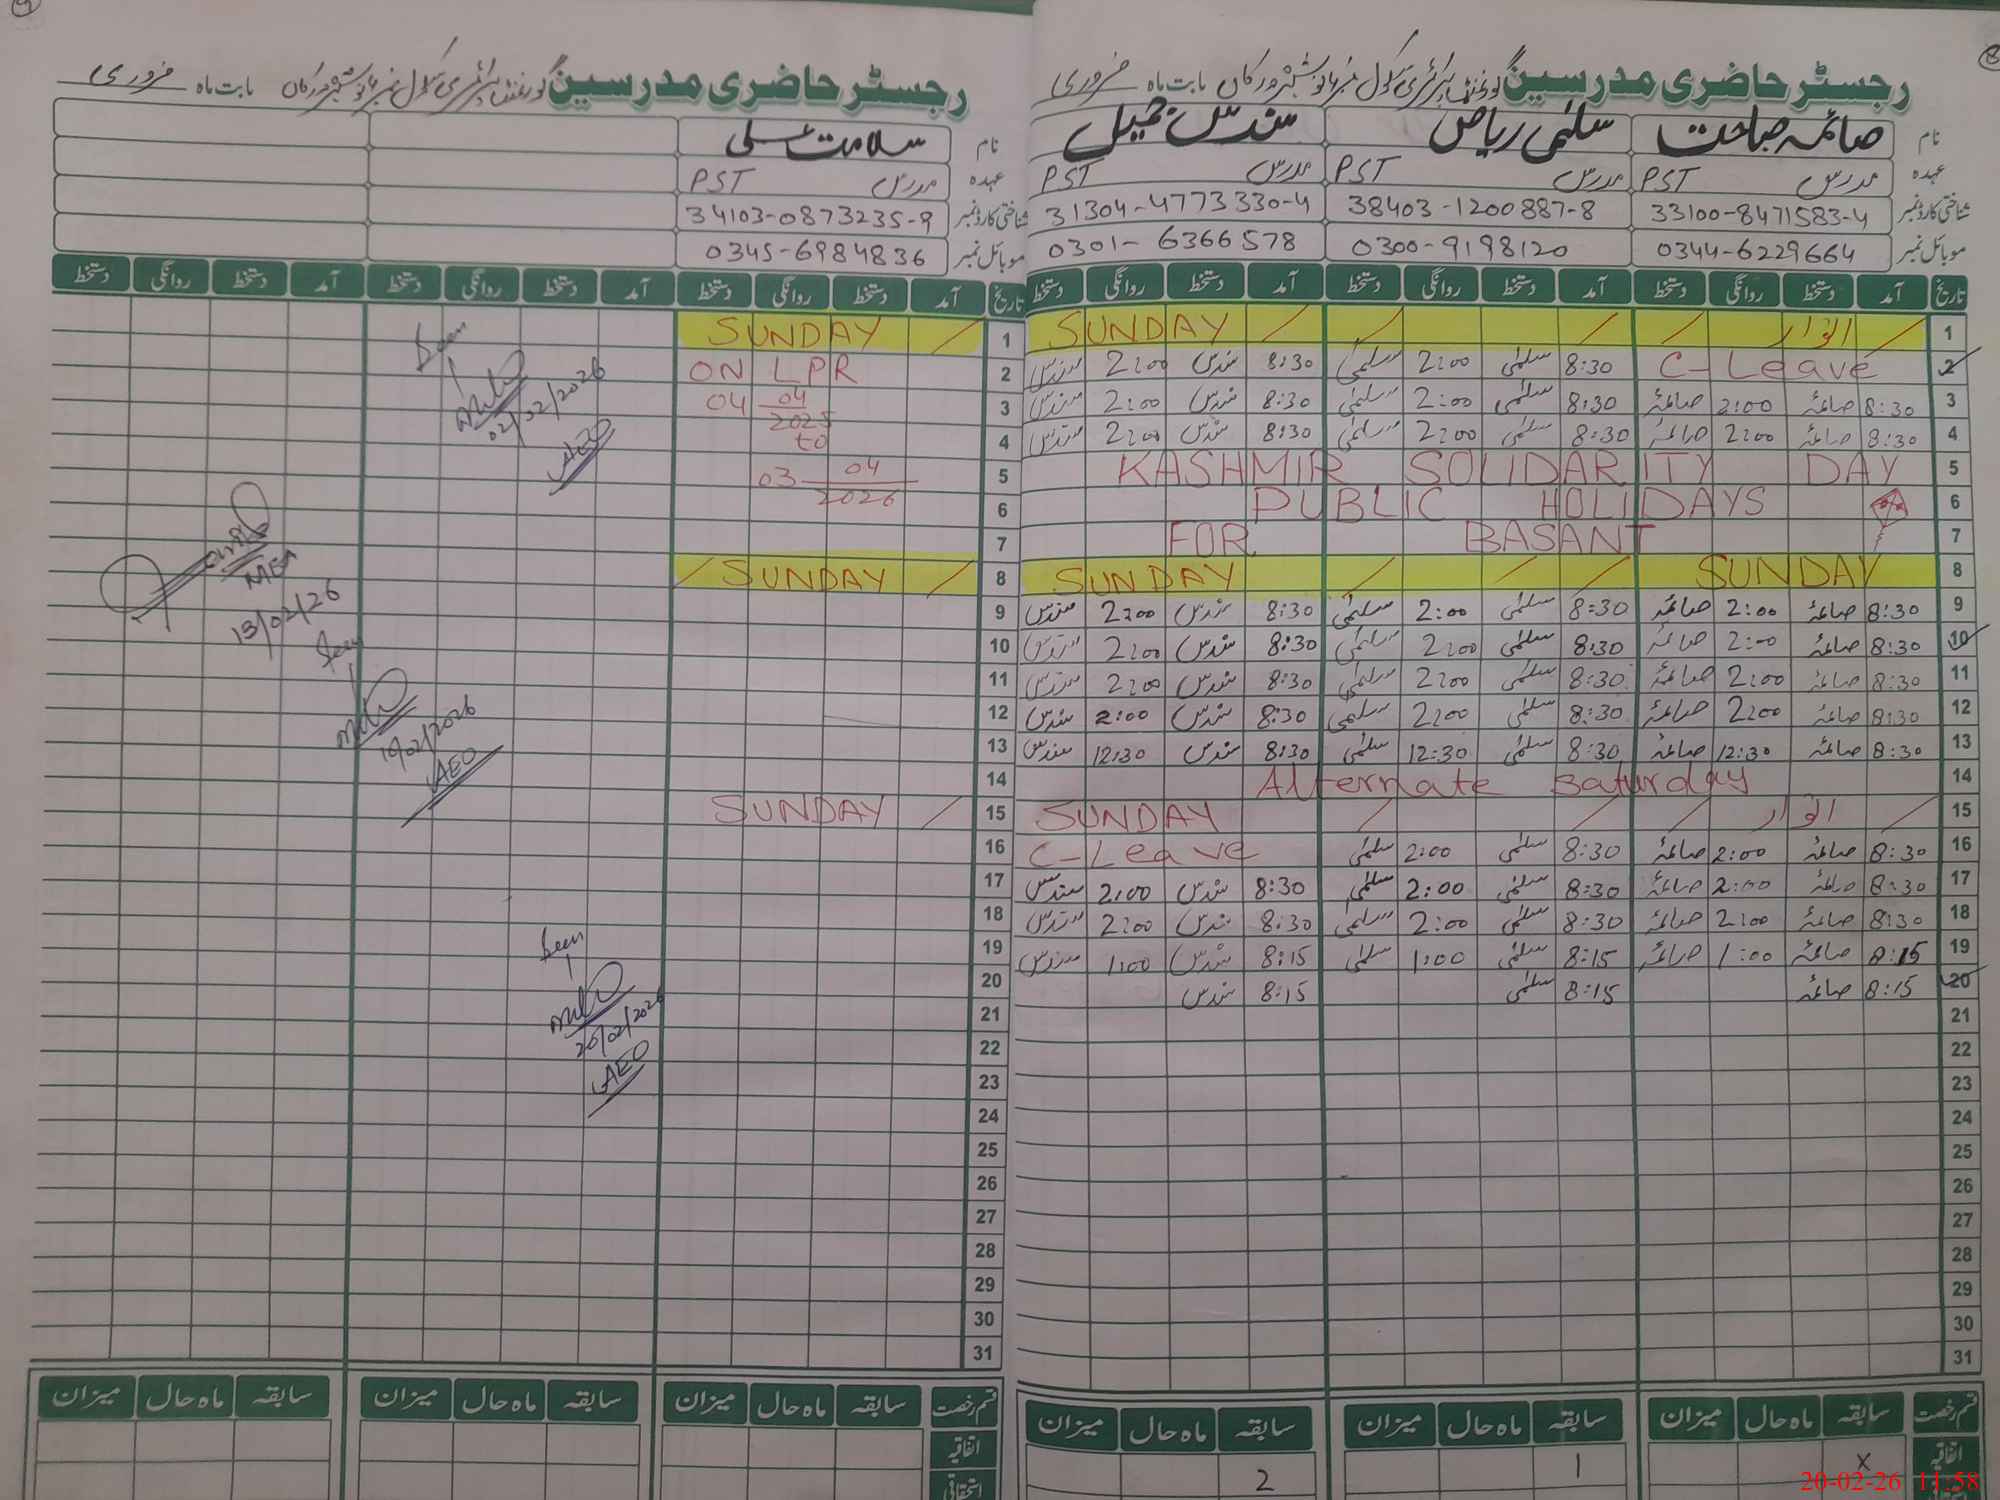 رجسٹر حاضری مدرسین گورنمنٹ پرائمری سکول نمبر بابت ماہ فروری
نام صائمہ صباحت سلمیٰ ریاض سندس جمیل
عہدہ مدرس PST مدرس PST مدرس PST
شناختی کارڈ نمبر 33100-8471583-4 38403-1200887-8 31304-4773330-4
موبائل نمبر 0344-6229664 0300-9198120 0301-6366578
تاریخ آمد دستخط روانگی دستخط آمد دستخط روانگی دستخط آمد دستخط روانگی دستخط
1 / اتوار / / / SUNDAY
2 C-Leave 8:30 سلمیٰ 2:00 سلمیٰ 8:30 سندس 2:00 سندس
3 8:30 صائمہ 2:00 صائمہ 8:30 سلمیٰ 2:00 سلمیٰ 8:30 سندس 2:00 سندس
4 8:30 صائمہ 2:00 صائمہ 8:30 سلمیٰ 2:00 سلمیٰ 8:30 سندس 2:00 سندس
5 KASHMIR SOLIDARITY DAY
6 PUBLIC HOLIDAYS
7 FOR BASANT
8 SUNDAY / / / SUNDAY
9 8:30 صائمہ 2:00 صائمہ 8:30 سلمیٰ 2:00 سلمیٰ 8:30 سندس 2:00 سندس
10 8:30 صائمہ 2:00 صائمہ 8:30 سلمیٰ 2:00 سلمیٰ 8:30 سندس 2:00 سندس
11 8:30 صائمہ 2:00 صائمہ 8:30 سلمیٰ 2:00 سلمیٰ 8:30 سندس 2:00 سندس
12 8:30 صائمہ 2:00 صائمہ 8:30 سلمیٰ 2:00 سلمیٰ 8:30 سندس 2:00 سندس
13 8:30 صائمہ 12:30 صائمہ 8:30 سلمیٰ 12:30 سلمیٰ 8:30 سندس 12:30 سندس
14 Alternate Saturday
15 / اتوار / / / SUNDAY
16 8:30 صائمہ 2:00 صائمہ 8:30 سلمیٰ 2:00 سلمیٰ C-Leave
17 8:30 صائمہ 2:00 صائمہ 8:30 سلمیٰ 2:00 سلمیٰ 8:30 سندس 2:00 سندس
18 8:30 صائمہ 2:00 صائمہ 8:30 سلمیٰ 2:00 سلمیٰ 8:30 سندس 2:00 سندس
19 8:15 صائمہ 1:00 صائمہ 8:15 سلمیٰ 1:00 سلمیٰ 8:15 سندس 1:00 سندس
20 8:15 صائمہ 8:15 سلمیٰ 8:15 سندس
21
22
23
24
25
26
27
28
29
30
31
قسم رخصت سابقہ ماہ حال میزان سابقہ ماہ حال میزان سابقہ ماہ حال میزان
اتفاقیہ x 1 2
رجسٹر حاضری مدرسین گورنمنٹ پرائمری سکول نمبر بابت ماہ فروری
نام سلامت علی
عہدہ مدرس PST
شناختی کارڈ نمبر 34103-0873235-9
موبائل نمبر 0345-6984836
تاریخ آمد دستخط روانگی دستخط آمد دستخط روانگی دستخط آمد دستخط روانگی دستخط
1 SUNDAY /
2 ON LPR
3 04 04
2025
4 to
5 03 04
6 2026
7
8 / SUNDAY /
9
10
11
12
13
14
15 SUNDAY /
16
17
18
19
20
21
22
23
24
25
26
27
28
29
30
31
Seen
02/02/2026
AEO
MEA
13/02/26
Seen
10/02/2026
AEO
Seen
20/02/2026
AEO
قسم رخصت سابقہ ماہ حال میزان سابقہ ماہ حال میزان سابقہ ماہ حال میزان
اتفاقیہ
استحقاقی
20-02-26 11:58